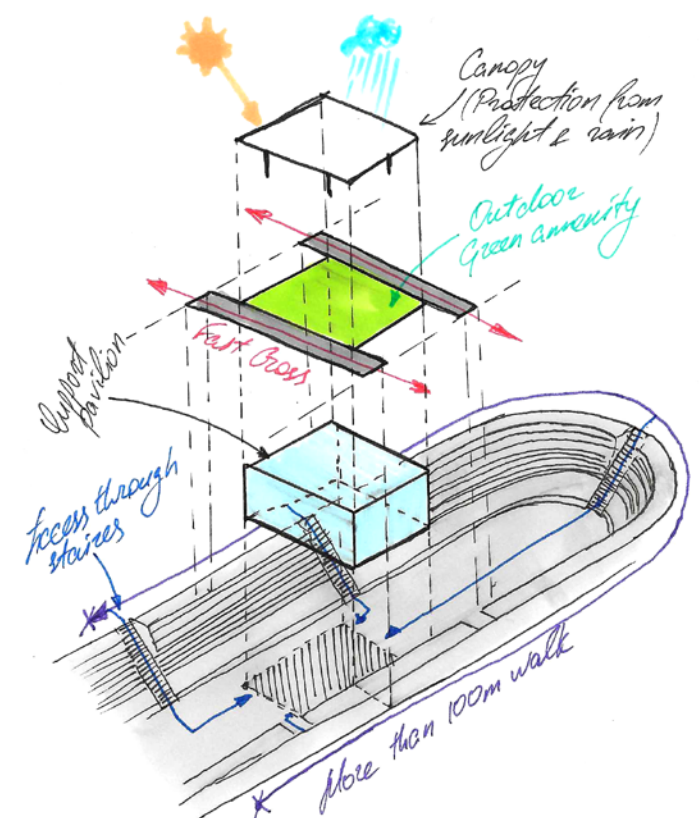 Canopy
(Protection from
sunlight & rain)
Outdoor
Green amenity
Fast Cross
Support
pavilion
Access through
staires
More than 100m walk